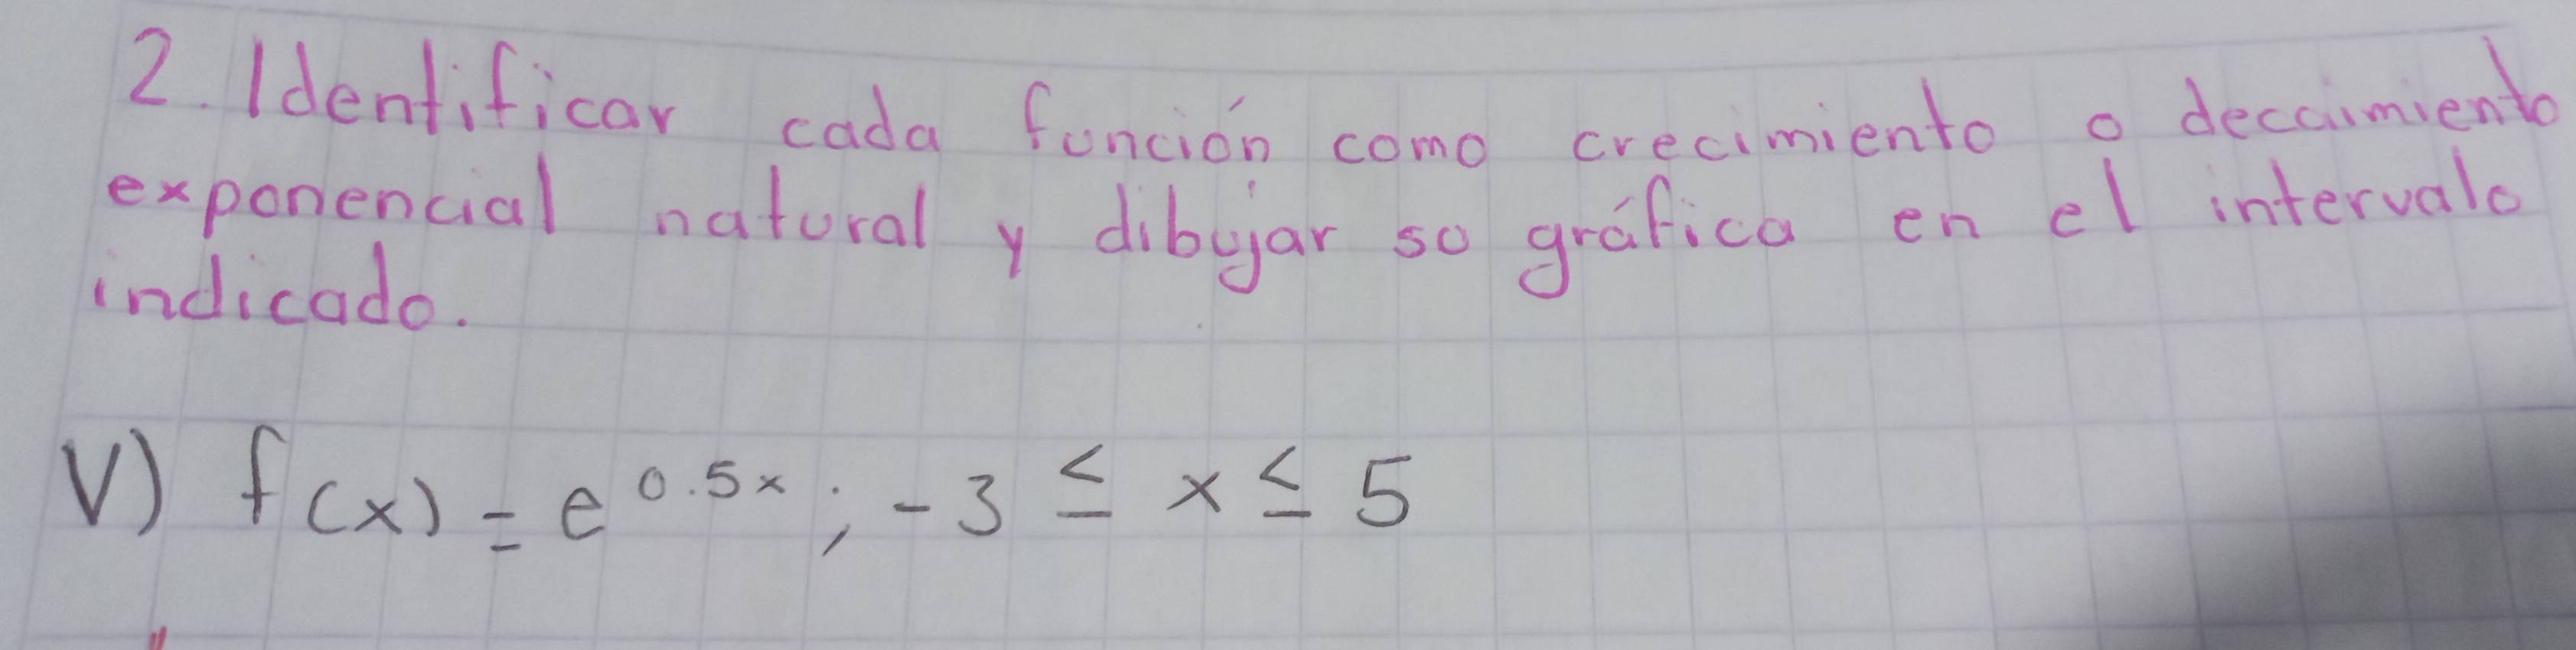 2. Identificar cada función como crecimiento o decaimiento
exponencial natural y dibujar su gráfica en el intervalo
indicado.
V) f(x) = e^0.5x ; -3 ≤ x ≤ 5